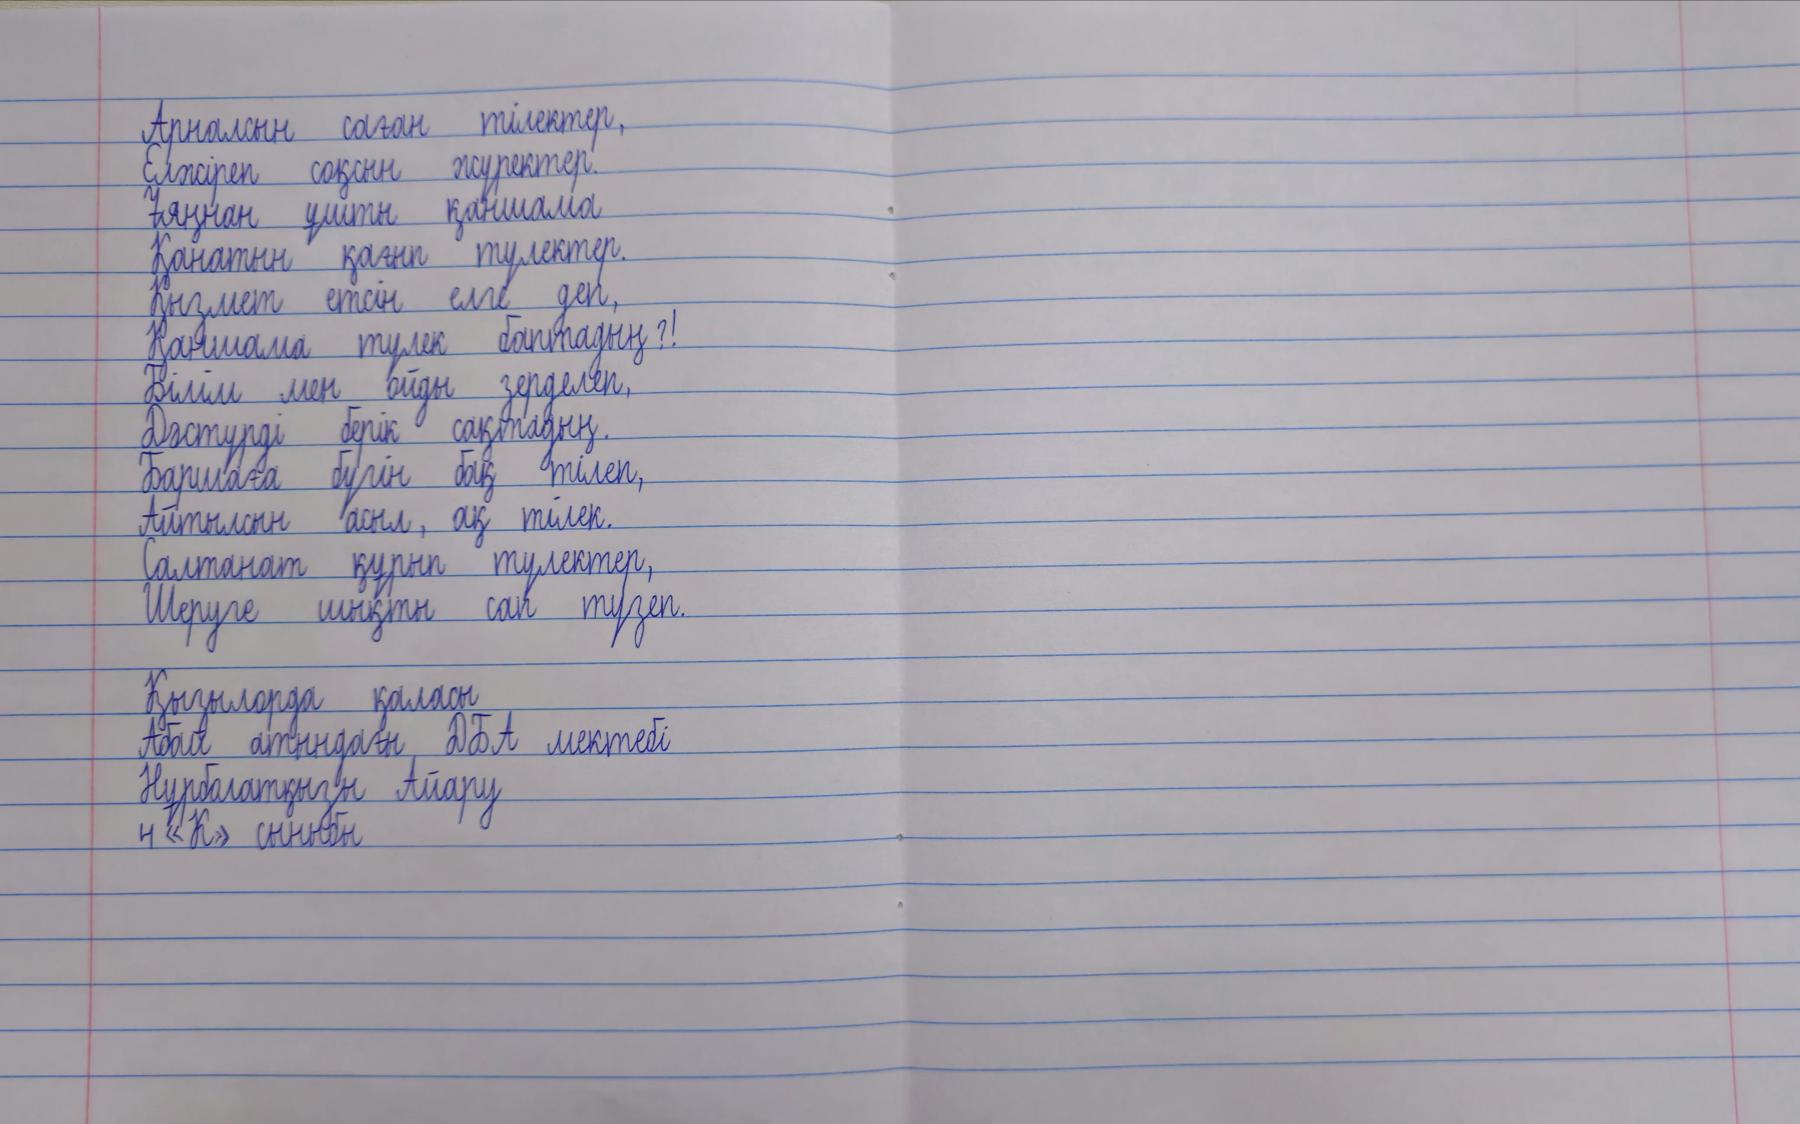 Арналсын саған тілектер,
Елжіреп соқсын жүректер.
Ұяңнан ұшты қаншама
Қанатын қағып түлектер.
Қызмет етсін елге деп,
Қаншама түлек баптадың?!
Білім мен ойды зерделеп,
Дәстүрді берік сақтадың.
Баршаға бүгін бақ тілеп,
Айтылсын асыл, ақ тілек.
Салтанат құрып түлектер,
Шеруге шықты сап түзеп.
Қызылорда қаласы
Абай атындағы ДБА мектебі
Нұрболатқызы Айару
4 «К» сыныбы